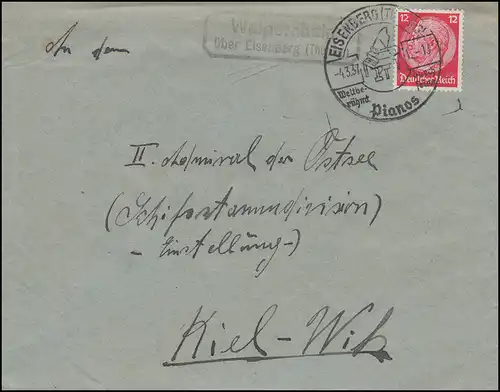 Walpernhain
über Eisenberg (Thür)
EISENBERG (THÜR)
-4.3.37
Weltbe-
rühmt
Pianos
12 12
Deutsches Reich
An den
II. Admiral der Ostsee
(Schiffsstammdivision)
- Einstellung -)
Kiel-Wik